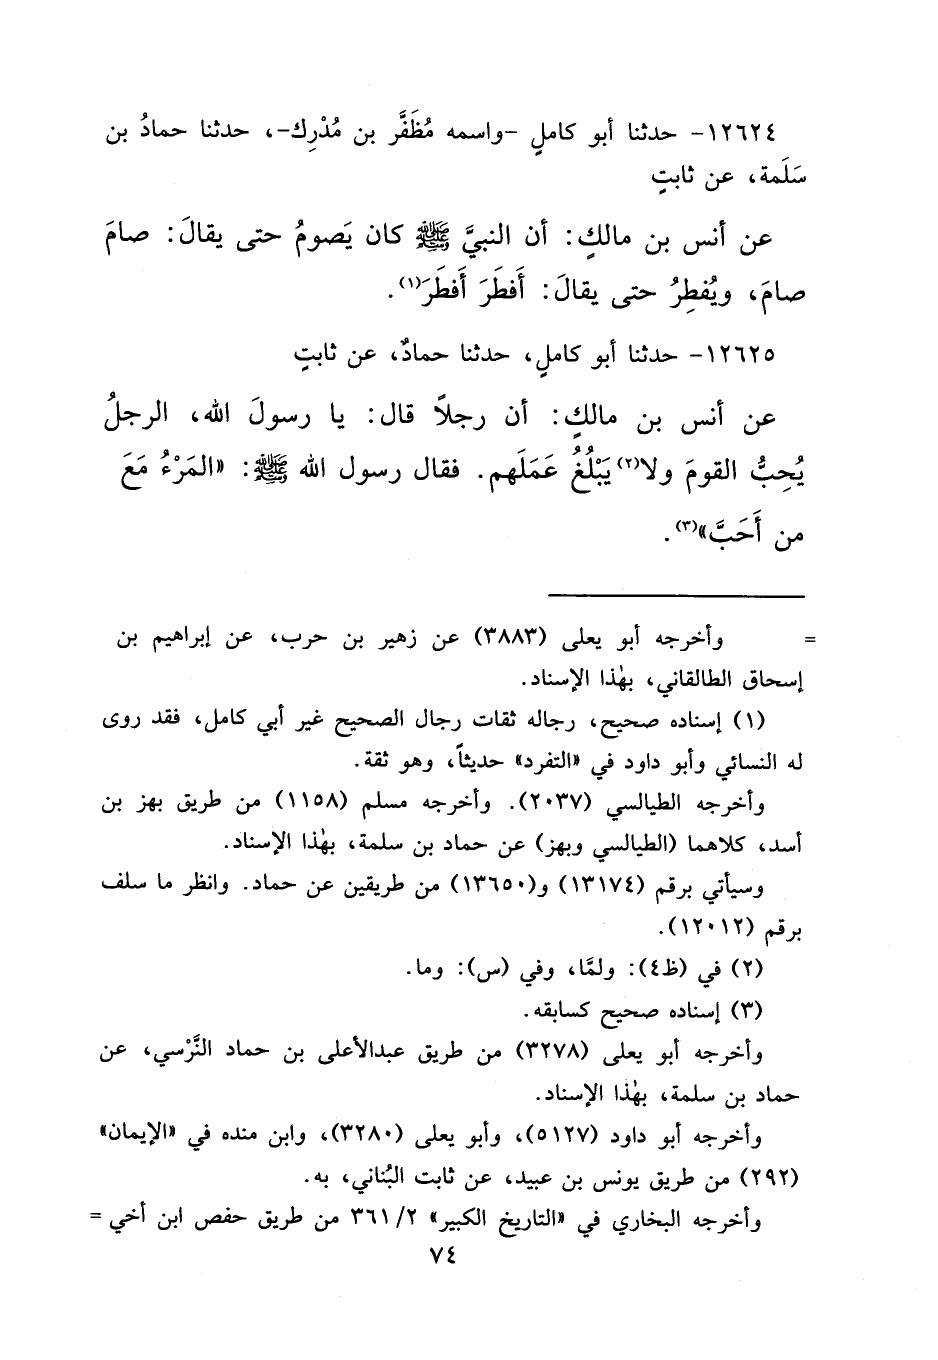 ١٢٦٢٤- حدثنا أبو كاملٍ -واسمه مُظَفَّر بن مُدْرِك-، حدثنا حمادُ بن
سَلَمة، عن ثابتٍ
عن أنس بن مالكٍ: أن النبيَّ ﷺ كان يَصومُ حتى يقالَ: صامَ
صامَ، ويُفطِرُ حتى يقالَ: أَفطَرَ أَفطَرَ(١).
١٢٦٢٥- حدثنا أبو كاملٍ، حدثنا حمادٌ، عن ثابتٍ
عن أنس بن مالكٍ: أن رجلاً قال: يا رسولَ الله، الرجلُ
يُحِبُّ القومَ ولا(٢) يَبْلُغُ عَمَلَهم. فقال رسول الله ﷺ: «المَرْءُ مَعَ
من أَحَبَّ»(٣).
= وأخرجه أبو يعلى (٣٨٨٣) عن زهير بن حرب، عن إبراهيم بن
إسحاق الطالقاني، بهٰذا الإسناد.
(١) إسناده صحيح، رجاله ثقات رجال الصحيح غير أبي كامل، فقد روى
له النسائي وأبو داود في «التفرد» حديثاً، وهو ثقة.
وأخرجه الطيالسي (٢٠٣٧). وأخرجه مسلم (١١٥٨) من طريق بهز بن
أسد، كلاهما (الطيالسي وبهز) عن حماد بن سلمة، بهٰذا الإسناد.
وسيأتي برقم (١٣١٧٤) و(١٣٦٥٠) من طريقين عن حماد. وانظر ما سلف
برقم (١٢٠١٢).
(٢) في (ظ٤): ولمَّا، وفي (س): وما.
(٣) إسناده صحيح كسابقه.
وأخرجه أبو يعلى (٣٢٧٨) من طريق عبدالأعلى بن حماد النَّرْسي، عن
حماد بن سلمة، بهٰذا الإسناد.
وأخرجه أبو داود (٥١٢٧)، وأبو يعلى (٣٢٨٠)، وابن منده في «الإيمان»
(٢٩٢) من طريق يونس بن عبيد، عن ثابت البُناني، به.
وأخرجه البخاري في «التاريخ الكبير» ٣٦١/٢ من طريق حفص ابن أخي =
٧٤